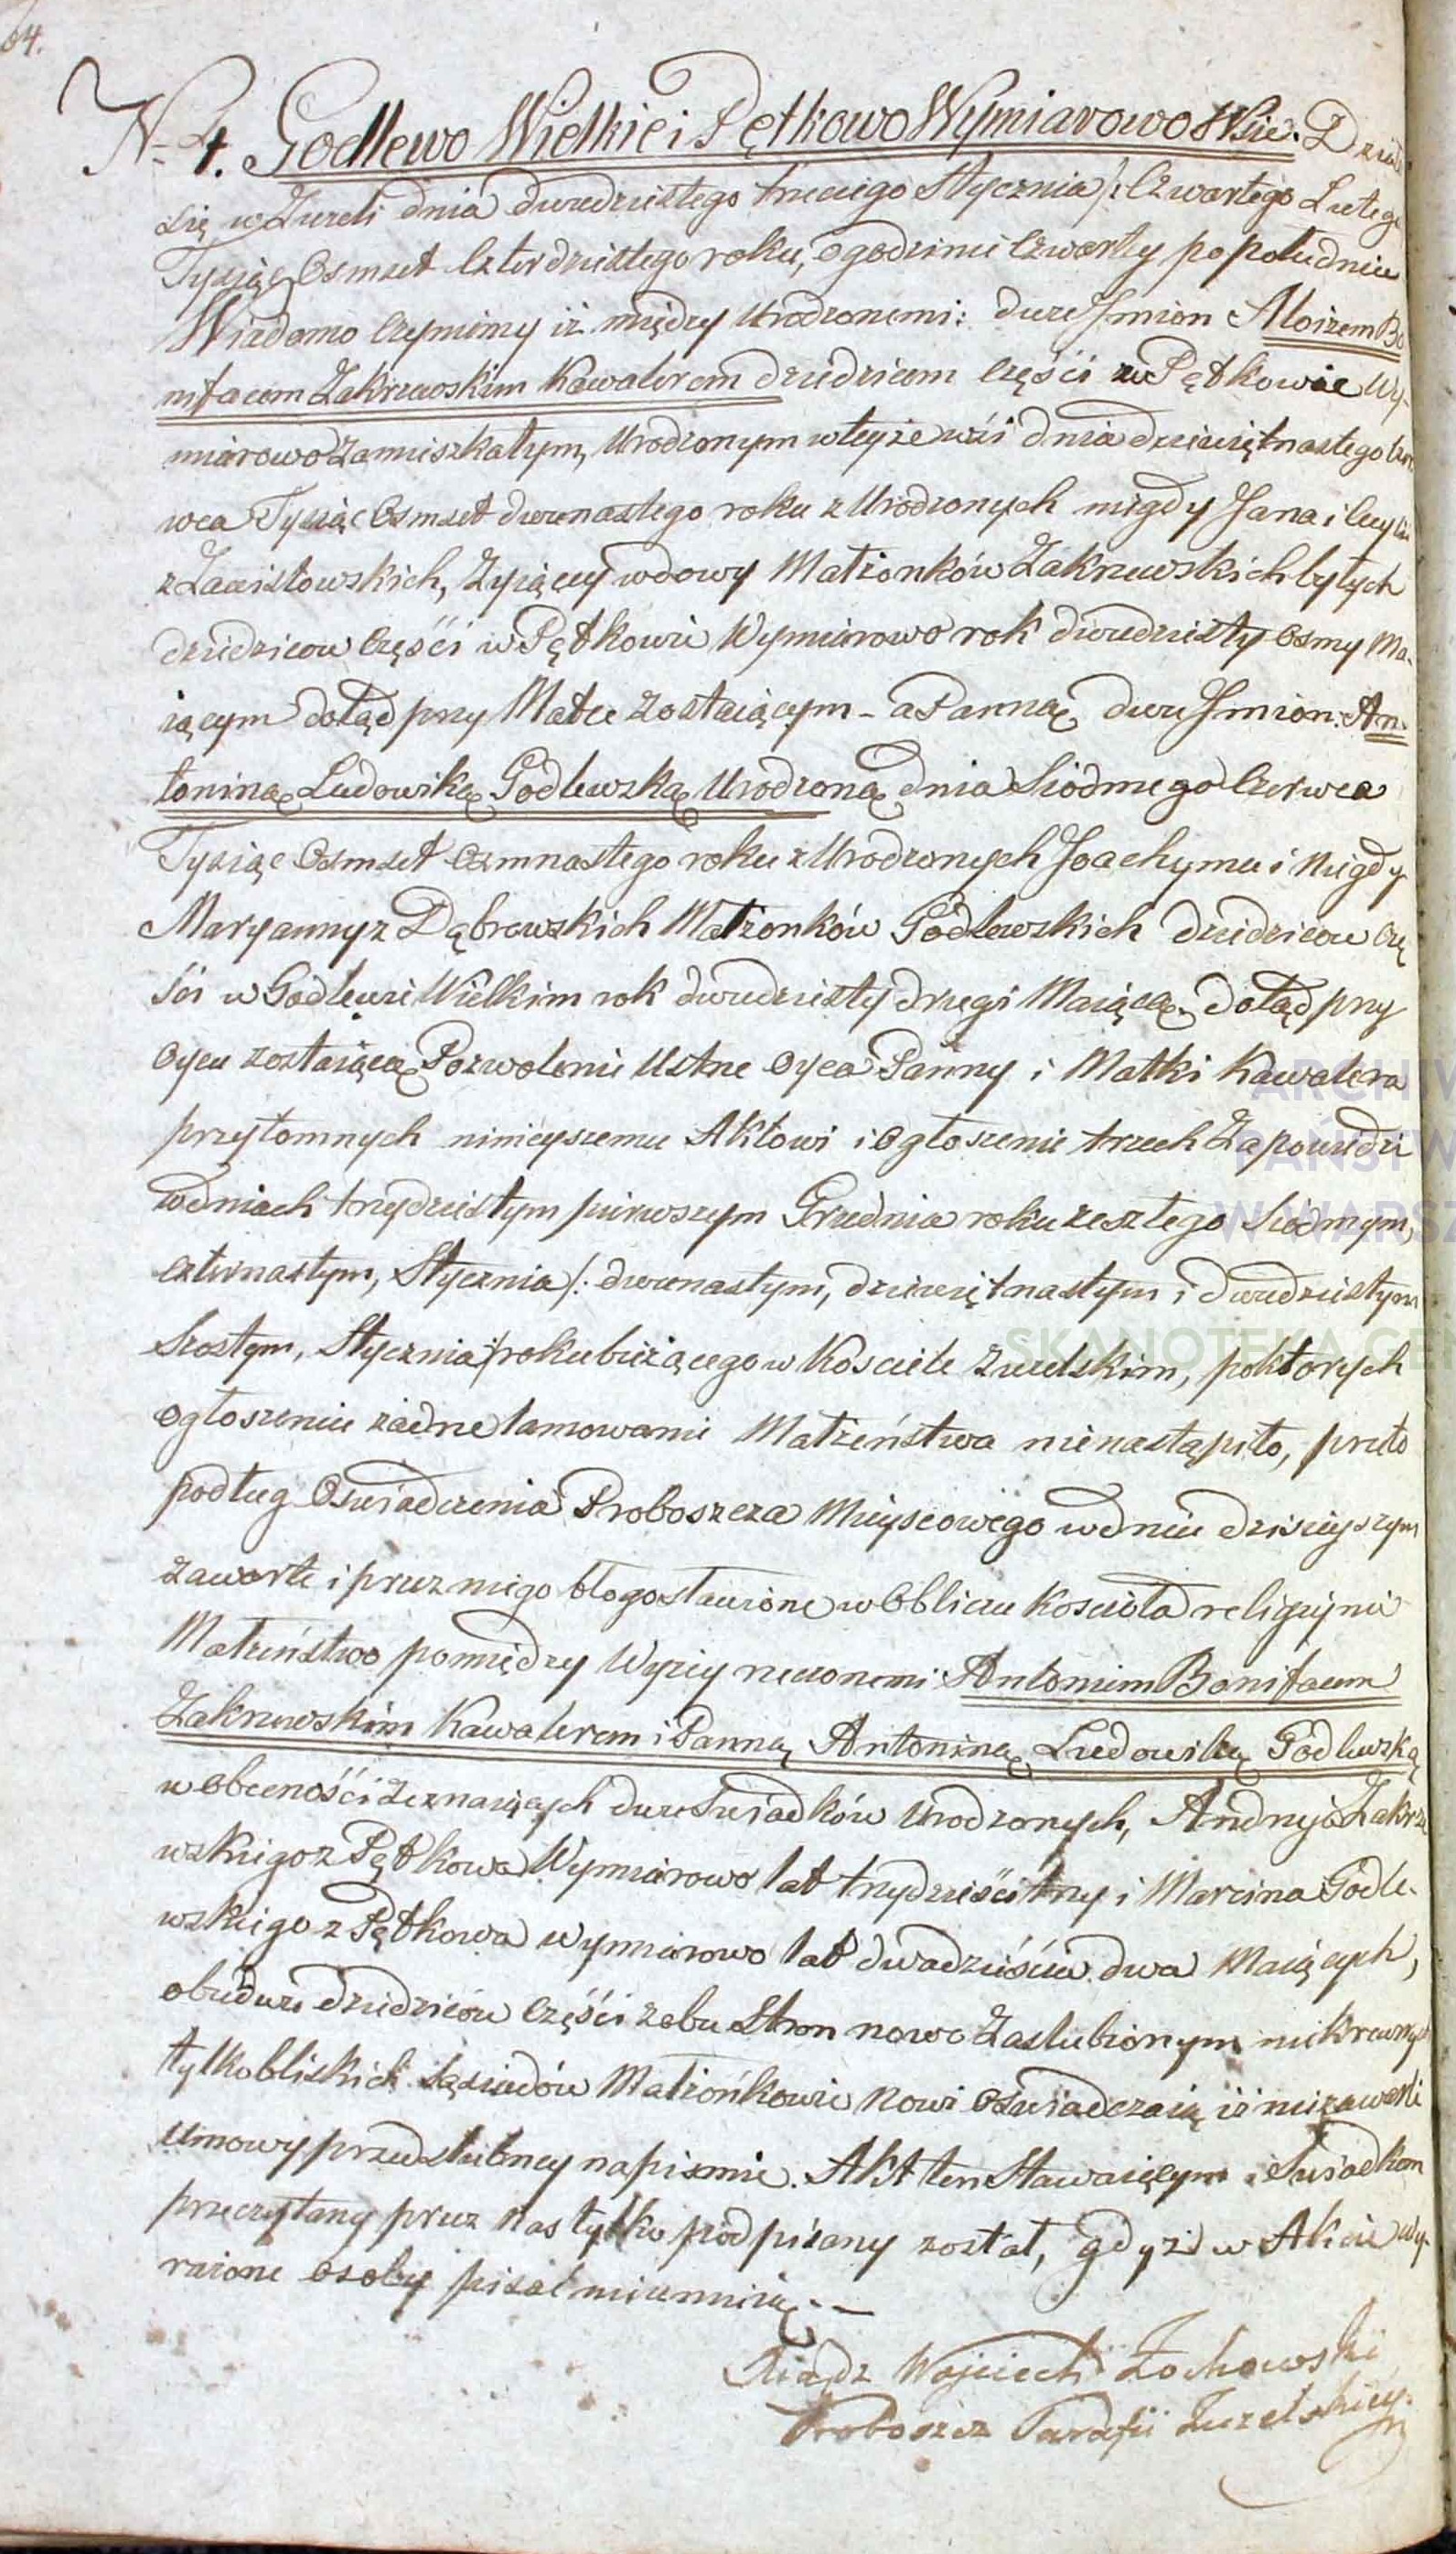 64.
N. 4. Godlewo Wielkie i Pętkowo Wymiarowo Wsie. Działo
się w Zuzeli dnia dwudziestego trzeciego Stycznia /: Czwartego Lutego
Tysiąc Osmset Czterdziestego roku, o godzinie Czwartey po południu
Wiadomo Czyniemy iż między Urodzonemi: dwu Jmion Aloizem Bo
nifacem Zakrzewskim Kawalerem dziedzicem Części w Pętkowie Wy-
miarowo Zamieszkałym, Urodzonym w teyże wsi dnia dziewiętnastego Czer
wca Tysiąc Osmset dwunastego roku z Urodzonych niegdy Jana i Cecylii
z Zawistowskich, Zyiącey wdowy Małżonków Zakrzewskich byłych
dziedziców Części w Pętkowie Wymiarowo rok dwudziesty Osmy Ma-
iącym dotąd przy Matce Zostaiącym - a Panną dwu Jmion. An-
toniną Ludowiką Godlewską Urodzoną dnia Siódmego Czerwca
Tysiąc Osmset Osmnastego roku z Urodzonych Joachyma i Niegdy
Maryanny z Dąbrowskich Małżonków Godlewskich dziedziców Czę
ści w Godlewie Wielkim rok dwudziesty drugi Maiącą dotąd przy
Oycu zostaiącą Pozwolenie Ustne Oyca Panny i Matki Kawalera
przytomnych ninieyszemu Aktowi i Ogłoszenie trzech Zapowiedzi
w dniach trzydziestym pierwszym Grudnia roku zeszłego Siódmym,
czternastym, Stycznia /: dwunastym, dziewiętnastym i dwudziestym
Szostym, Stycznia :/ roku bieżącego w Kościele Zuzelskim, po których
Ogłoszeniu żadne tamowanie Małżeństwa nienastąpiło, przeto
podług Oświadczenia Proboszcza Mieyscowego w dniu dzisieyszym
zawarte i przez niego błogosławione w Obliczu Kościoła religijnie
Małżeństwo pomiędzy Wyżey rzeczonemi Antonim Bonifacem
Zakrzewskim Kawalerem i Panną Antoniną Ludowiką Godlewską
w Obecności Zeznaiących dwu Swiadków Urodzonych, Andrzeja Zakrze
wskiego z Pętkowa Wymiarowo lat trzydzieści trzy i Marcina Godle-
wskiego z Pętkowa Wymiarowo lat dwadzieścia dwa Maiących,
obudwu dziedziców Części z obu Stron nowo Zaslubionym niekrewnych
tylko bliskich sąsiadów Małżonkowie Nowi Oswiadczaią iż niezawarli
Umowy przedslubney na pismie. Akt ten Stawaiącym i Swiadkom
przeczytany przez Nas tylko podpisany został, gdyż w Akcie wy-
rażone osoby pisać nieumieią. —
Xiądz Wojciech Żochowski
Proboszcz Parafii Zuzelskiey
ARCHIW
PAŃSTW
W WARSZ
SKANOTEKA GEN